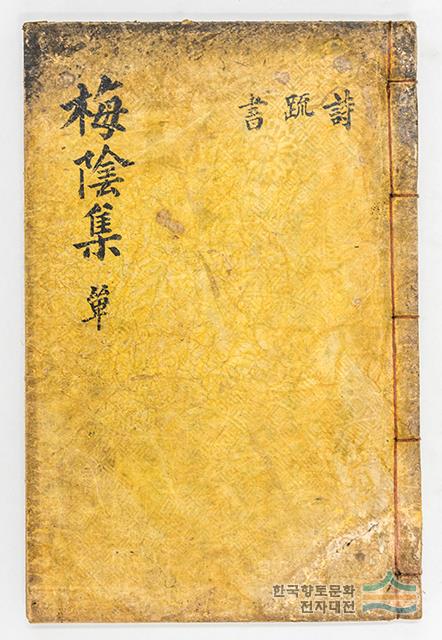 梅陰集 單
詩 䟽 書
한국향토문화
전자대전